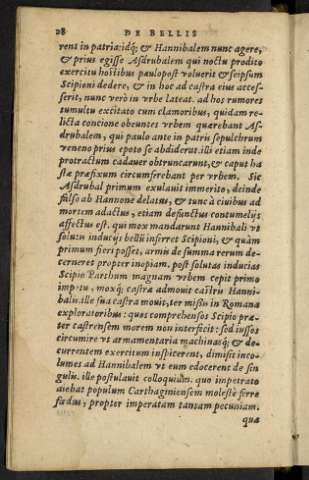 28 DE BELLIS
rent in patria: idq; & Hannibalem nunc agere,
& prius egisse Asdrubalem qui noctu prodito
exercitu hostibus paulopost voluerit & seipsum
Scipioni dedere, & in hoc ad castra eius acces-
serit, nunc verò in vrbe lateat. ad hos rumores
tumultu excitato cum clamoribus, quidam re-
licta concione obeuntes vrbem quærebant As-
drubalem, qui paulo ante in patris sepulchrum
veneno prius epoto se abdiderat. illi etiam inde
protractum cadauer obtruncarunt, & caput ha
stæ præfixum circumferebant per vrbem. Sic
Asdrubal primum exulauit immerito, deinde
falso ab Hannone delatus, & tunc à ciuibus ad
mortem adactus, etiam defunctus contumelijs
affectus est. qui mox mandarunt Hannibali vt
solutis inducijs bellũ inferret Scipioni, & quàm
primum fieri posset, armis de summa rerum de-
cerneret propter inopiam. post solutas inducias
Scipio Parthum magnam vrbem cepit primo
impetu, moxq; castra admouit castris Hanni-
balis. ille sua castra mouit, ter missis in Romana
exploratoribus: quos comprehensos Scipio præ-
ter castrensem morem non interficit: sed iussos
circumire vt armamentaria machinasq; & de-
currentem exercitum inspicerent, dimisit inco-
lumes ad Hannibalem vt eum edocerent de sin
gulis. ille postulauit colloquium. quo impetrato
aiebat populum Carthaginiensem molestè ferre
fœdus, propter imperatam tantam pecuniam.
quæ